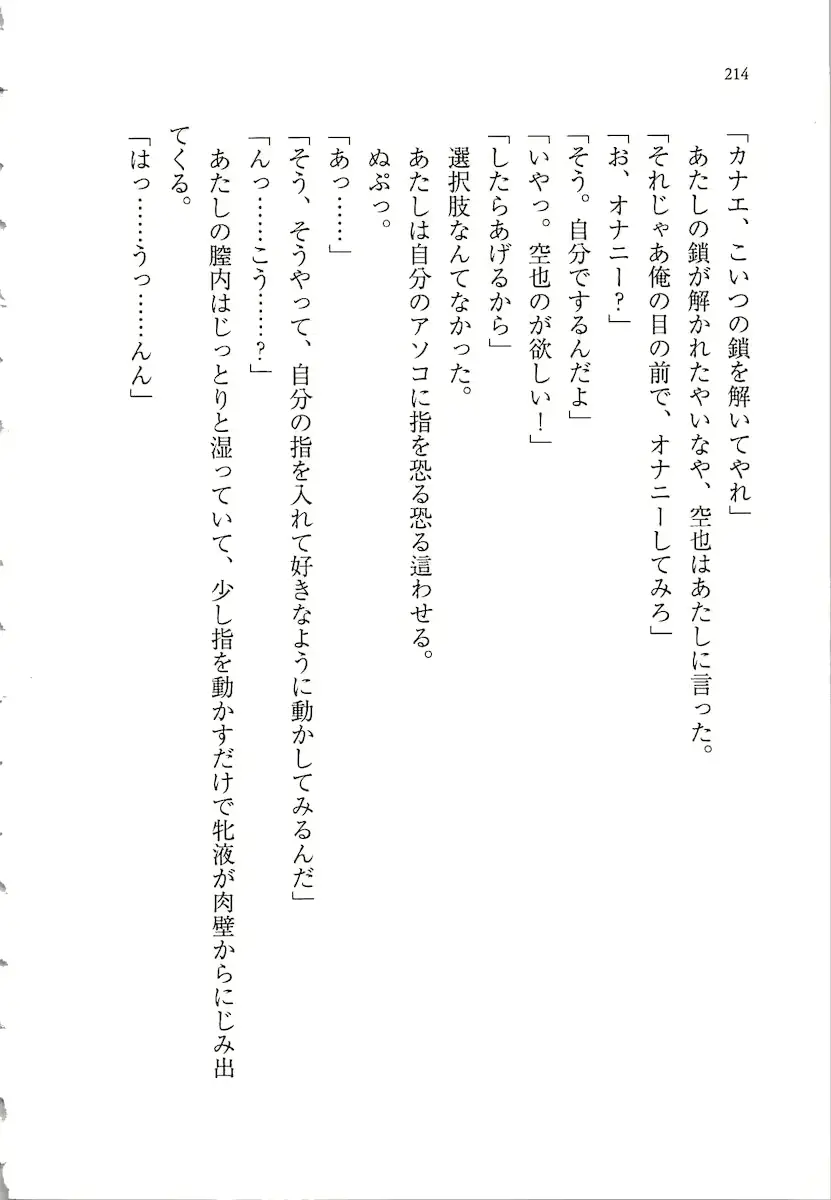 214
「カナエ、こいつの鎖を解いてやれ」
あたしの鎖が解かれたやいなや、空也はあたしに言った。
「それじゃあ俺の目の前で、オナニーしてみろ」
「お、オナニー?」
「そう。自分でするんだよ」
「いやっ。空也のが欲しい!」
「したらあげるから」
選択肢なんてなかった。
あたしは自分のアソコに指を恐る恐る這わせる。
ぬぷっ。
「あっ……」
「そう、そうやって、自分の指を入れて好きなように動かしてみるんだ」
「んっ……こう……?」
あたしの膣内はじっとりと湿っていて、少し指を動かすだけで牝液が肉壁からにじみ出
てくる。
「はっ……うっ……んん」